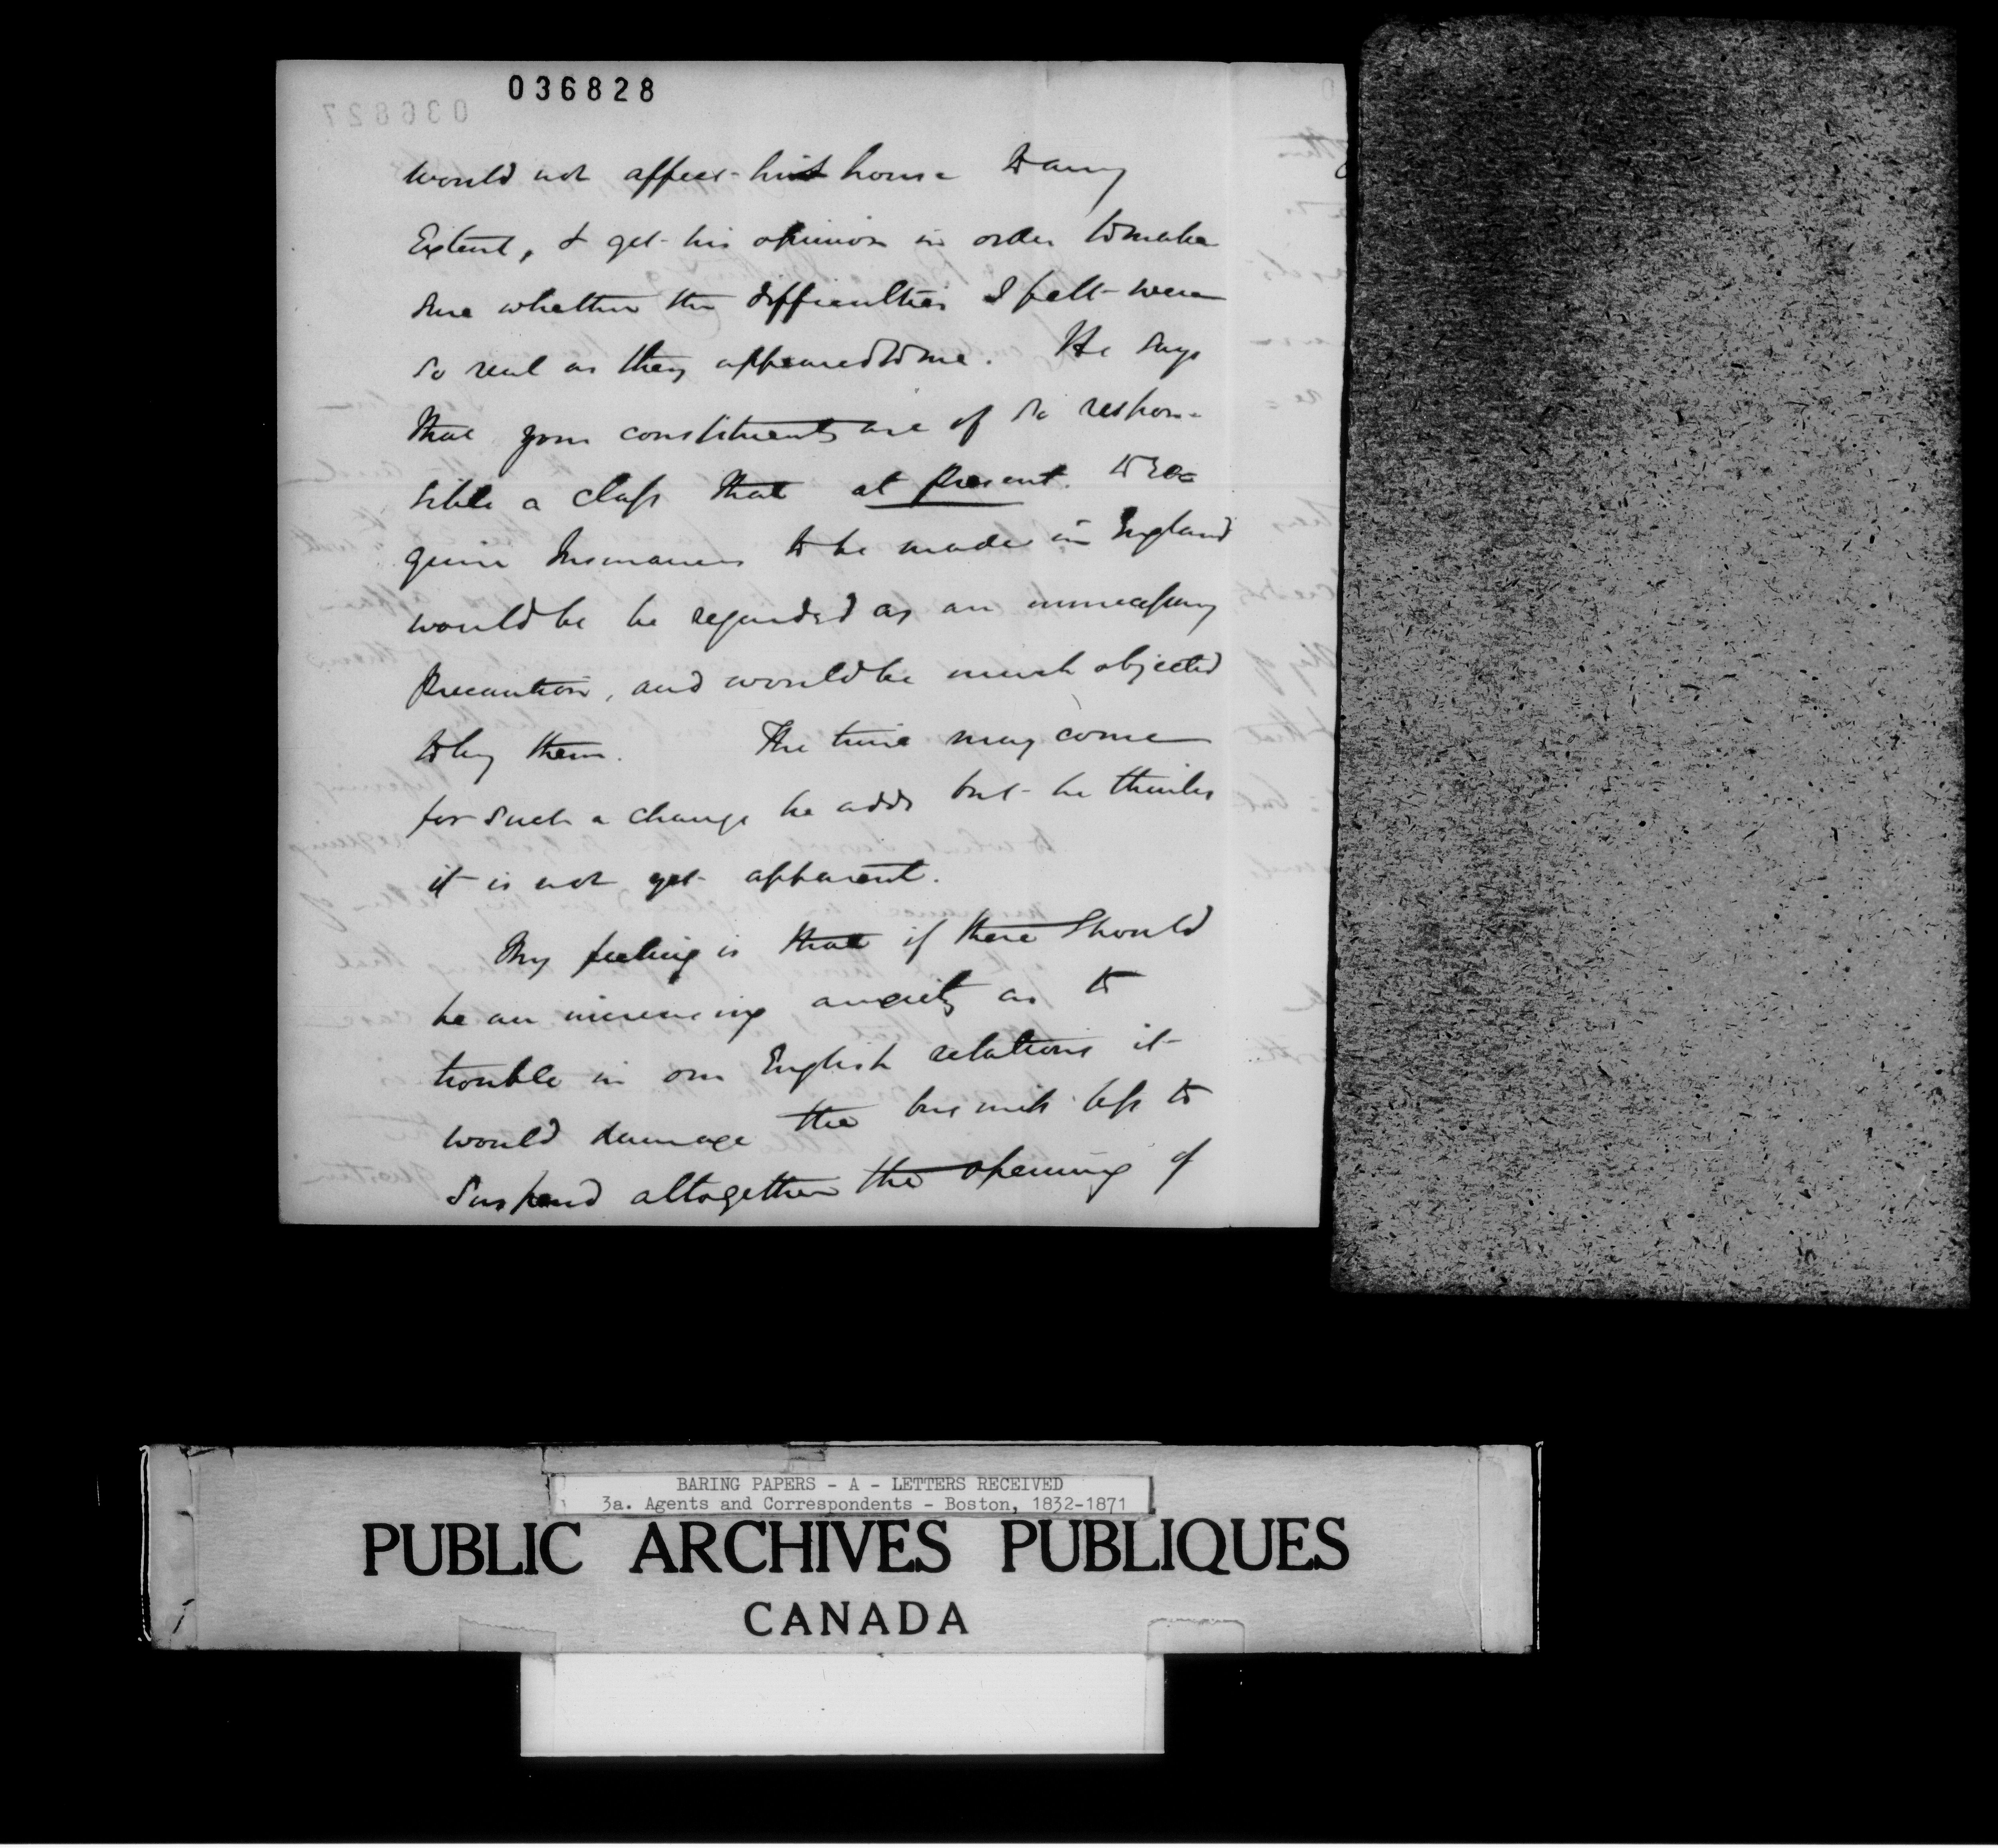 036828
036827
would not affect his house to any
Extent, & get his opinion in order to make
sure whether the difficulties I felt were
so real as they appeared to me. He says
that your constituents are of so respon-
sible a class that at present to re=
quire Insurances to be made in England
would be be regarded as an unnecessary
precaution, and would be much objected
to by them. The time may come
for such a change he adds but he thinks
it is not yet apparent.
My feeling is that if there should
be an increasing anxiety as to
trouble in our English relations it
would damage the business less to
suspend altogether the opening of
BARING PAPERS - A - LETTERS RECEIVED
3a. Agents and Correspondents - Boston, 1832-1871
PUBLIC ARCHIVES PUBLIQUES
CANADA